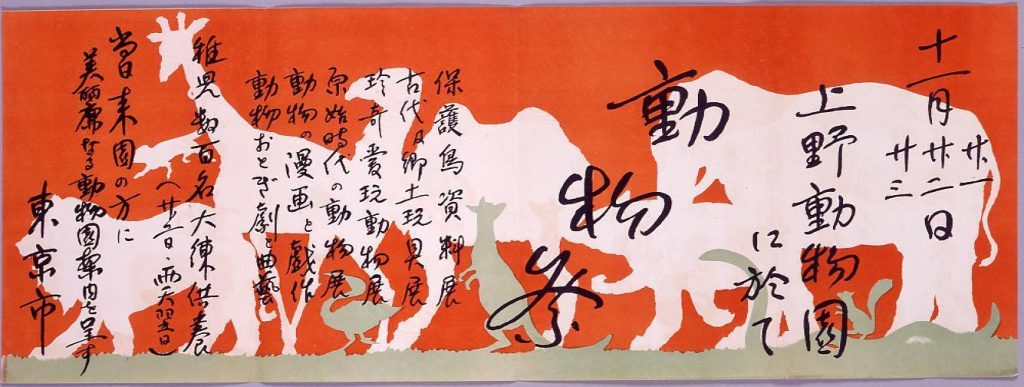 十一月廿一 廿二 廿三日
上野動物園
に於て
動物祭
保護鳥資料展
古代及郷土玩具展
珍奇愛玩動物展
原始時代の動物展
動物の漫画と戯作
動物おとぎ劇と曲藝
稚児数百名大練供養
(廿三日・雨天翌日)
当日来園の方に
美麗なる動物園案内を呈す
東京市